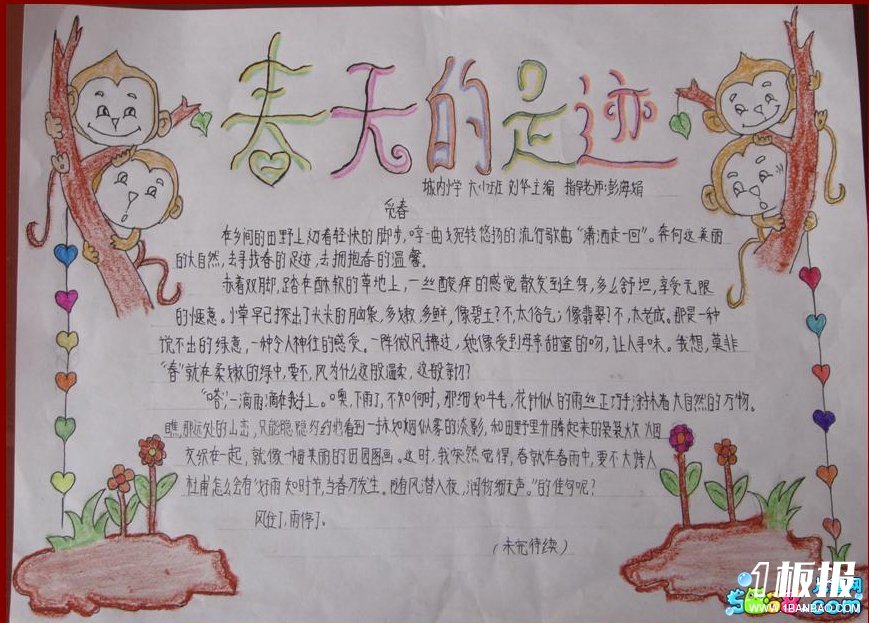 春天的足迹
城内小学 六(2)班 刘华主编 指导老师:彭海娟
觅春
在乡间的田野上迈着轻快的脚步,哼一曲婉转悠扬的流行歌曲“潇洒走一回”。奔向这美丽
的大自然,去寻找春的足迹,去拥抱春的温馨。
赤着双脚,踏在酥软的草地上,一丝酸痒的感觉散发到全身,多么舒坦,享受无限
的惬意。小草早已探出了尖尖的脑袋,多嫩,多鲜,像碧玉?不,太俗气;像翡翠?不,太老成。那是一种
说不出的绿意,一种令人神往的感受。一阵微风拂过,她像受到母亲甜蜜的吻,让人寻味。我想,莫非
“春”就在柔嫩的绿中,要不,风为什么这般温柔,这般亲切?
“嗒,”一滴雨滴在我手上。噢,下雨了,不知何时,那细如牛毛,花针似的雨丝正巧手涂抹着大自然的万物。
瞧,那远处的山峦,只能隐隐约约的看到一抹如烟似雾的淡影,和田野里升腾起来的袅袅炊烟
交织在一起,就像一幅美丽的田园图画。这时,我突然觉得,春就在春雨中,要不大诗人
杜甫怎么会有“好雨知时节,当春乃发生。随风潜入夜,润物细无声。”的佳句呢?
风住了,雨停了。
(未完待续)
1板报
WWW.1BANBAO.COM
.com